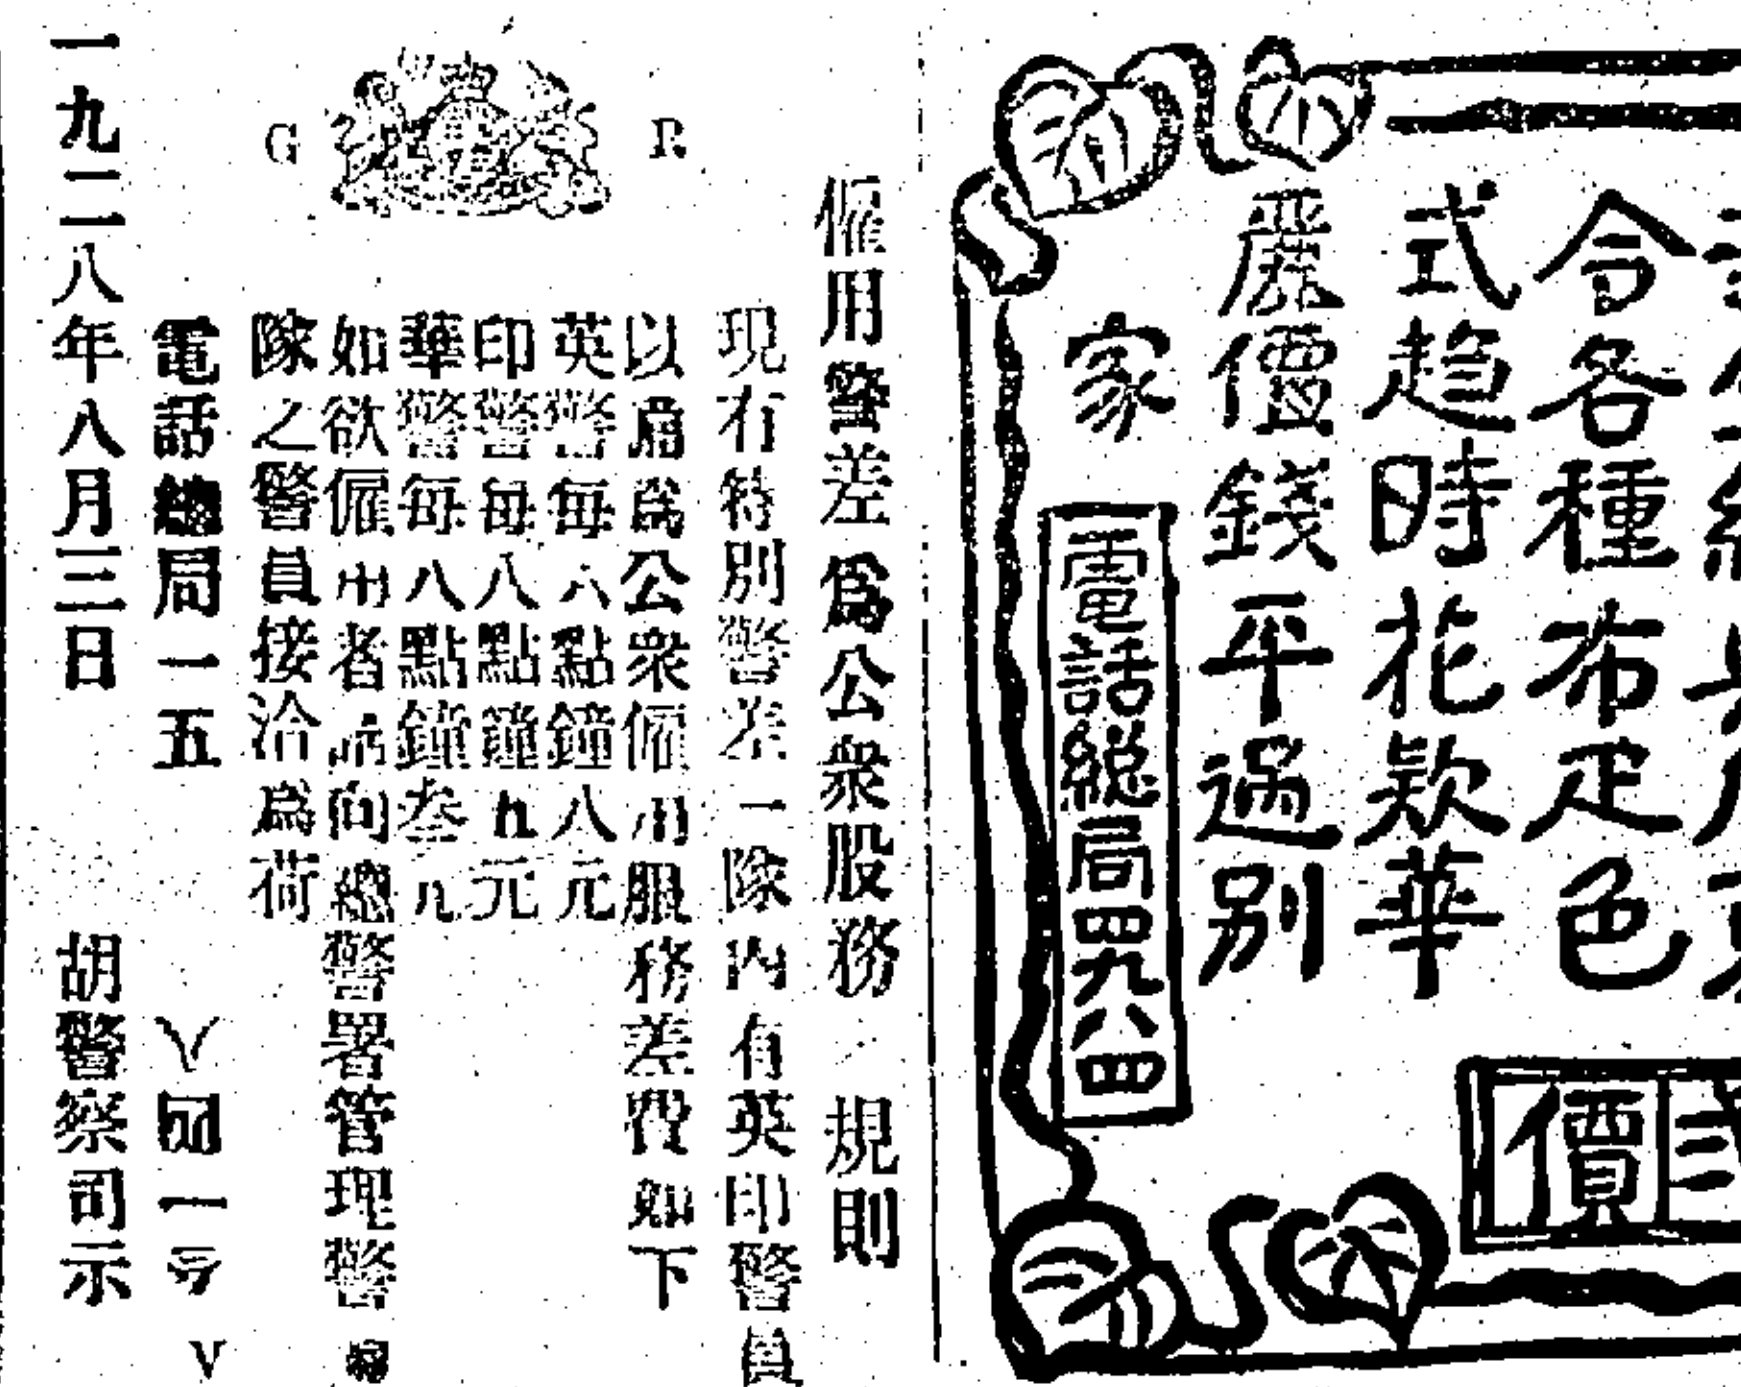 今各種布疋色
式趋時花欵華
麗價錢平過別
家
電話総局四九八四
價
G R
僱用警差爲公衆股務 規則
現有特別警差一隊內有英印警員
以爲公衆僱用服務差費如下
英警每六點鐘八元
印警每八點鐘九元
華警每八點鐘叁元
如欲僱用者請向總警署管理警
隊之警員接洽爲荷
電話總局一五 八 一
V
一九二八年八月三日 胡警察司示